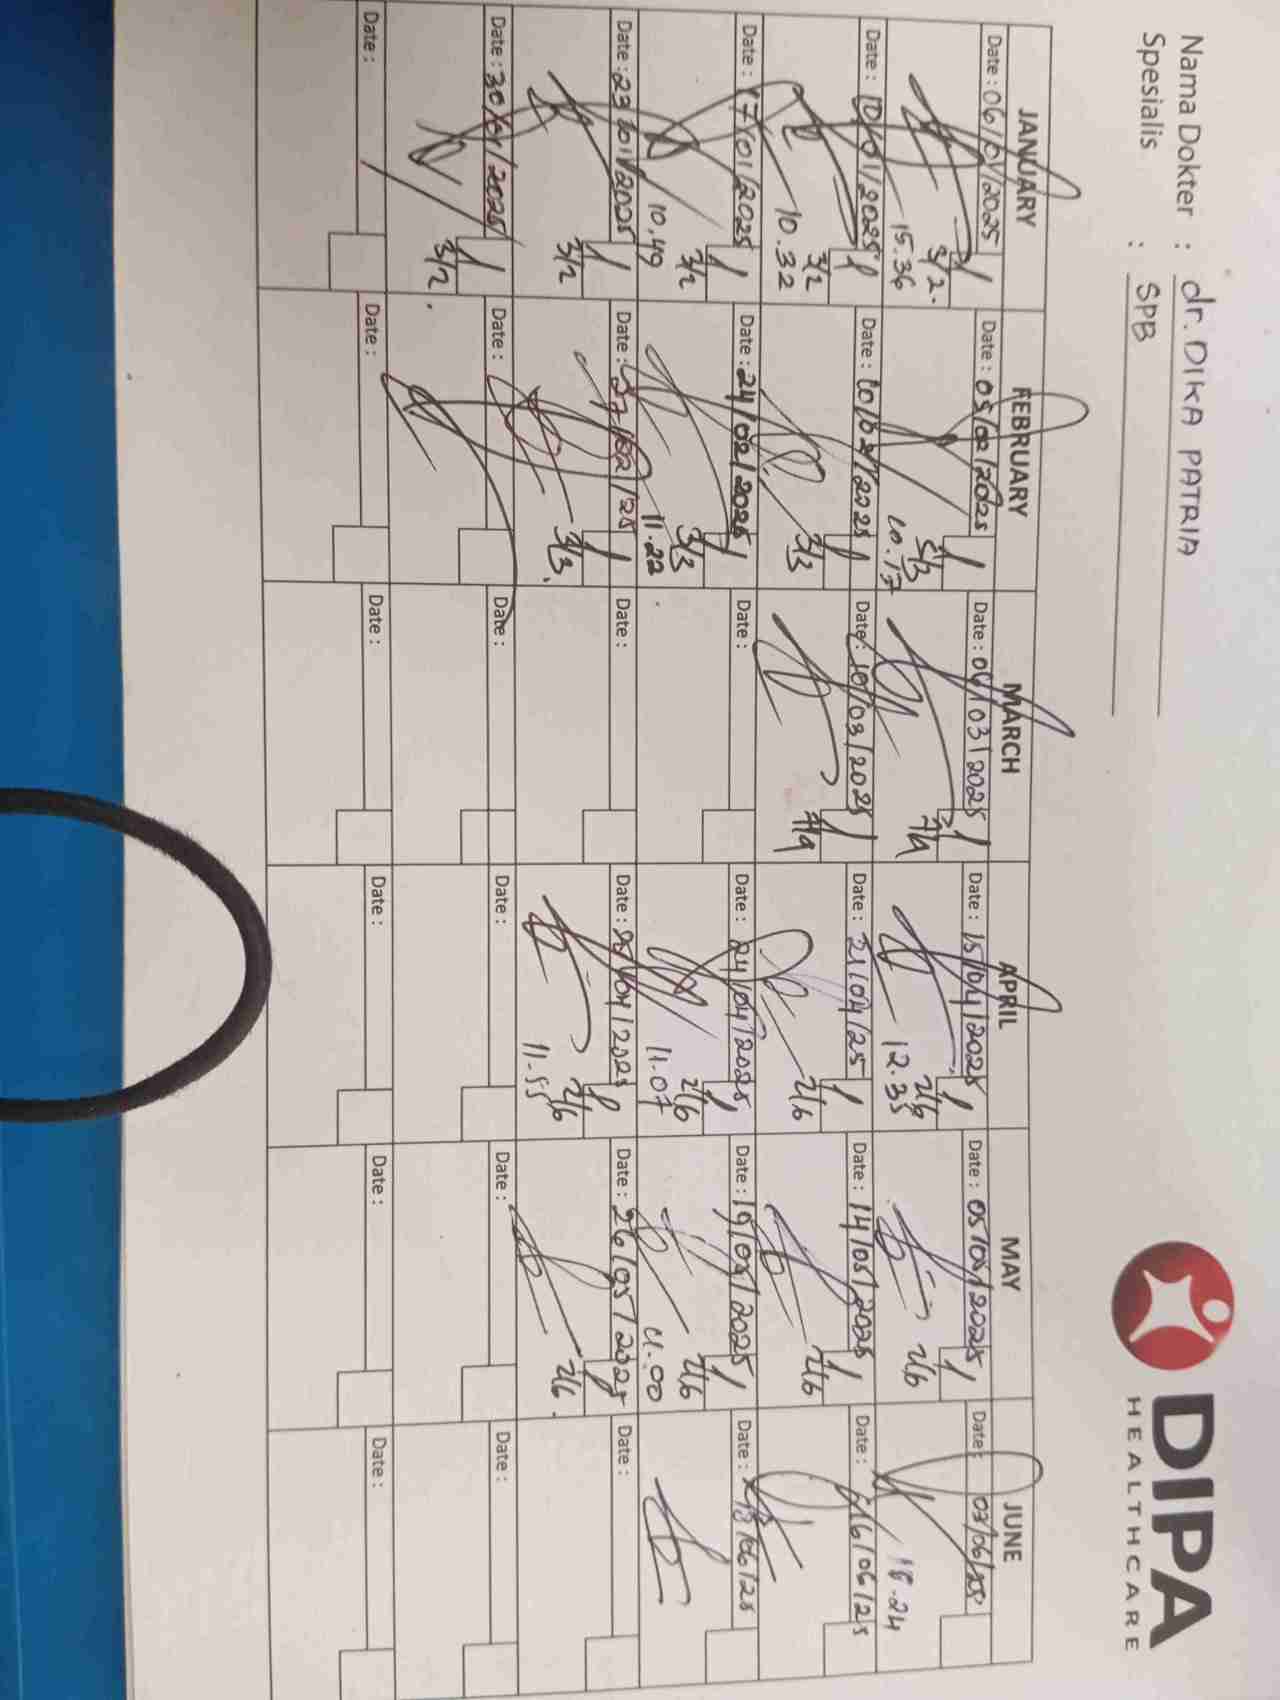 Nama Dokter : dr. DIKA PATRIA
Spesialis : SPB
DIPA
HEALTHCARE
JANUARY FEBRUARY MARCH APRIL MAY JUNE
Date : 06/01/2025 Date : 05/02/2025 Date : 06/03/2025 Date : 15/04/2025 Date : 05/05/2025 Date : 03/06/25
3/2. 3/3 7/4 2/6 2/6
15.36 10.17 12.35 18.24
Date : 10/01/2025 Date : 10/02/2025 Date : 10/03/2025 Date : 21/04/25 Date : 14/05/2025 Date : 16/06/25
3/2 3/3 7/4 2/6 2/6
10.32
Date : 17/01/2025 Date : 24/02/2025 Date : Date : 24/04/2025 Date : 19/05/2025 Date : /06/25
3/2 3/3 2/6 2/6
10.49 11.22 11.07 11.00
Date : 23/01/2025 Date : 27/02/25 Date : Date : /04/2025 Date : 26/05/2025 Date :
3/2 3/3. 2/6 2/6.
11.55
Date : 30/01/2025 Date : Date : Date : Date : Date :
3/2.
Date : Date : Date : Date : Date : Date :